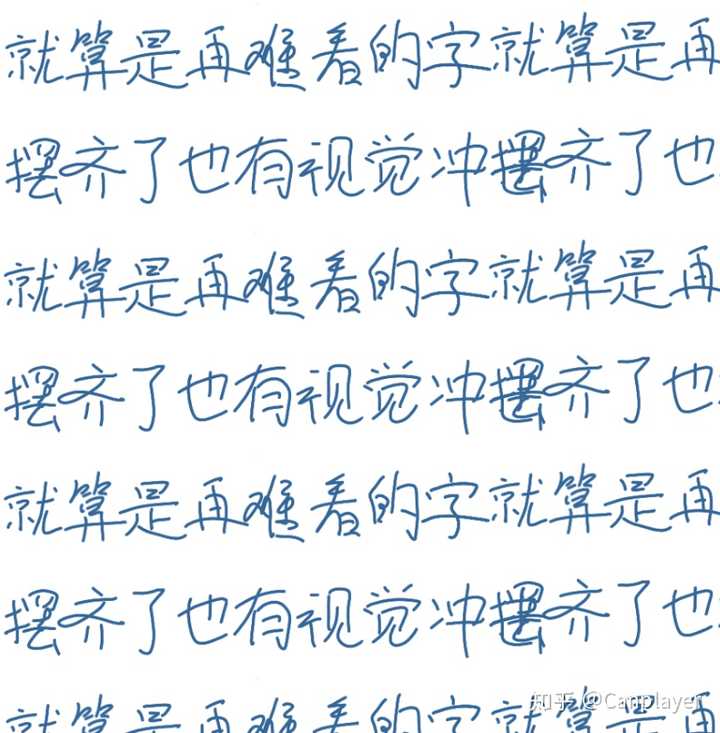 就算是再难看的字就算是再
摆齐了也有视觉冲摆齐了也
就算是再难看的字就算是再
摆齐了也有视觉冲摆齐了也
就算是再难看的字就算是再
摆齐了也有视觉冲摆齐了也
就算是再难看的字就算是再
知乎 @Canplayer